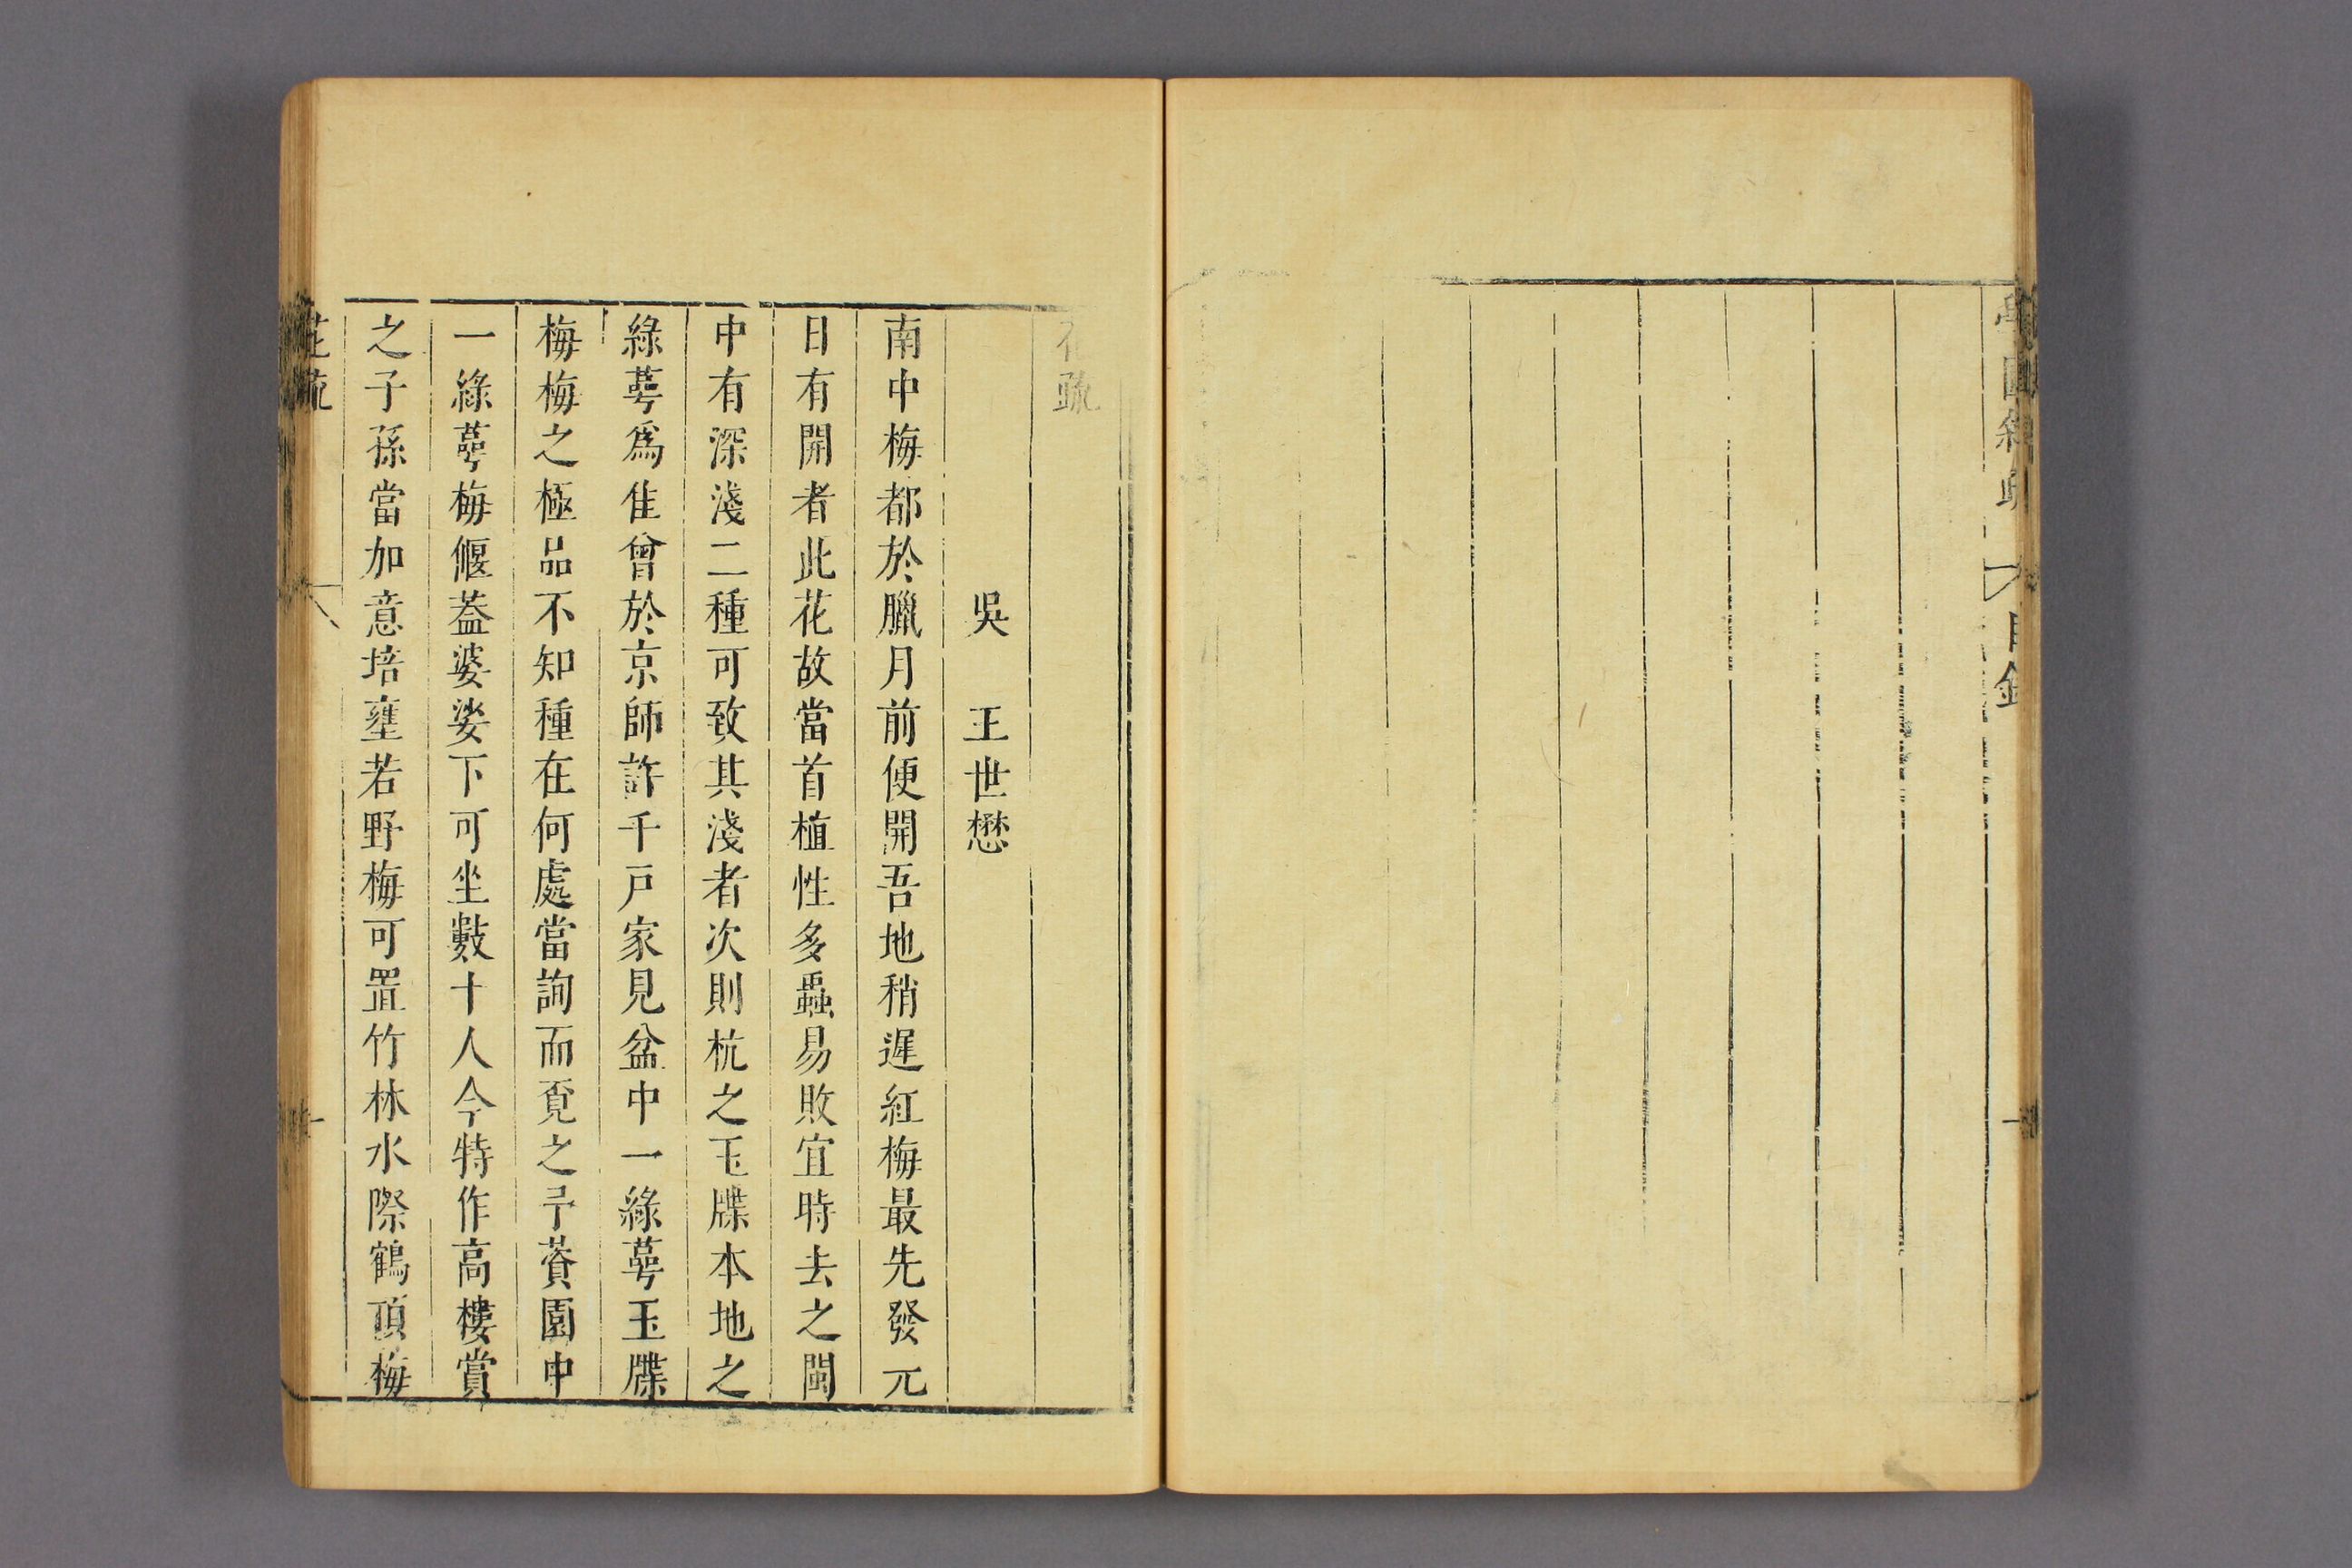 目錄
花疏
吳 王世懋
南中梅都於臘月前便開吾地稍遲紅梅最先發元
日有開者此花故當首植性多蟲易敗宜時去之閩
中有深淺二種可致其淺者次則杭之玉牒本地之
綠萼爲隹曾於京師許千戸家見盆中一綠萼玉牒
梅梅之極品不知種在何處當詢而覓之予蕡園中
一綠萼梅偃葢婆娑下可坐數十人今特作高樓賞
之子孫當加意培壅若野梅可置竹林水際鶴頂梅
花疏